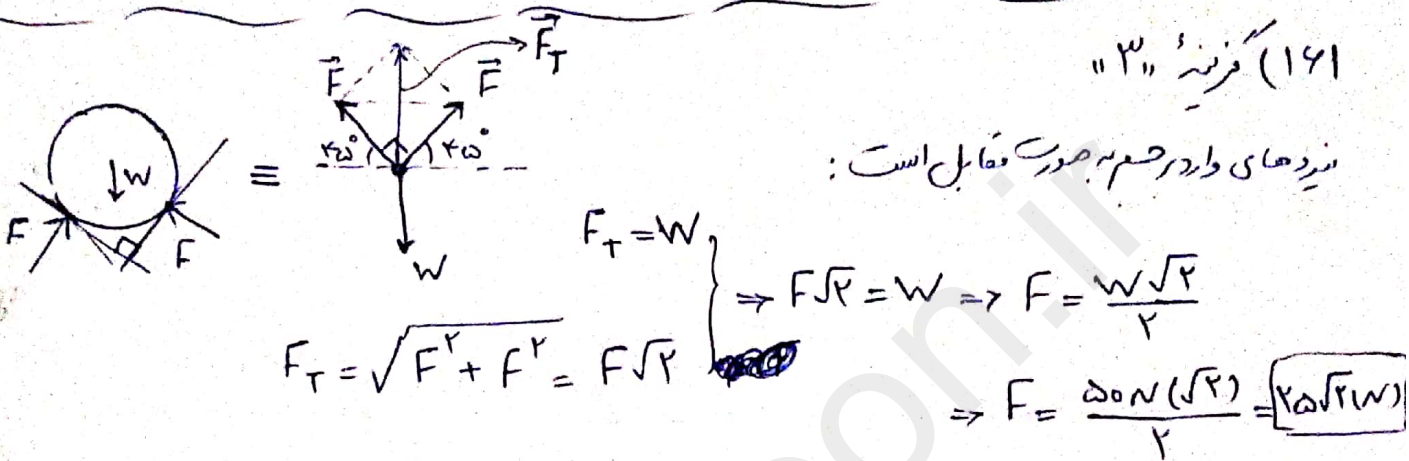 ۱۶۱) گزینهٔ «۳»
نیروهای وارد بر جسم به صورت مقابل است:
F F W ≡ F⃗ F⃗ F⃗_T ۴۵° ۴۵° W
F_T = W
F_T = √(F^۲ + F^۲) = F√۲
⇒ F√۲ = W ⇒ F = W√۲ / ۲
⇒ F = ۵۰N(√۲) / ۲ = ۲۵√۲(N)
on.ir